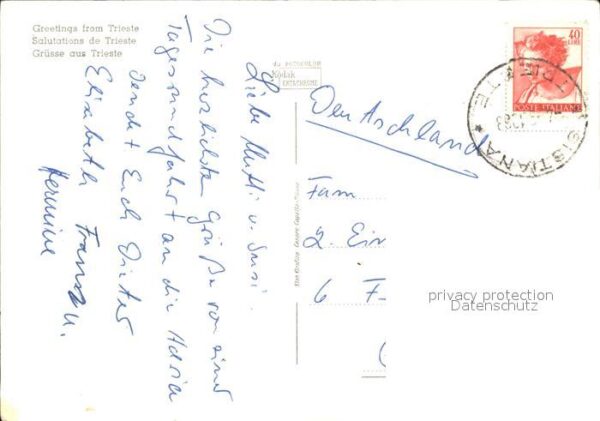 Greetings from Trieste
Salutations de Trieste
Grüsse aus Trieste
Liebe Mutti u. Susi.
Die herzlichsten Grüße von einer
Tagesrundfahrt an die Adria
sendet Euch Dieter
Elisabeth Franz u.
Hermine
Kodak
EKTACHROME
40
LIRE
POSTE ITALIANE
SISTIANA *
TRIESTE
Deutschland
Fam
2. Ein
6 F
privacy protection
Datenschutz